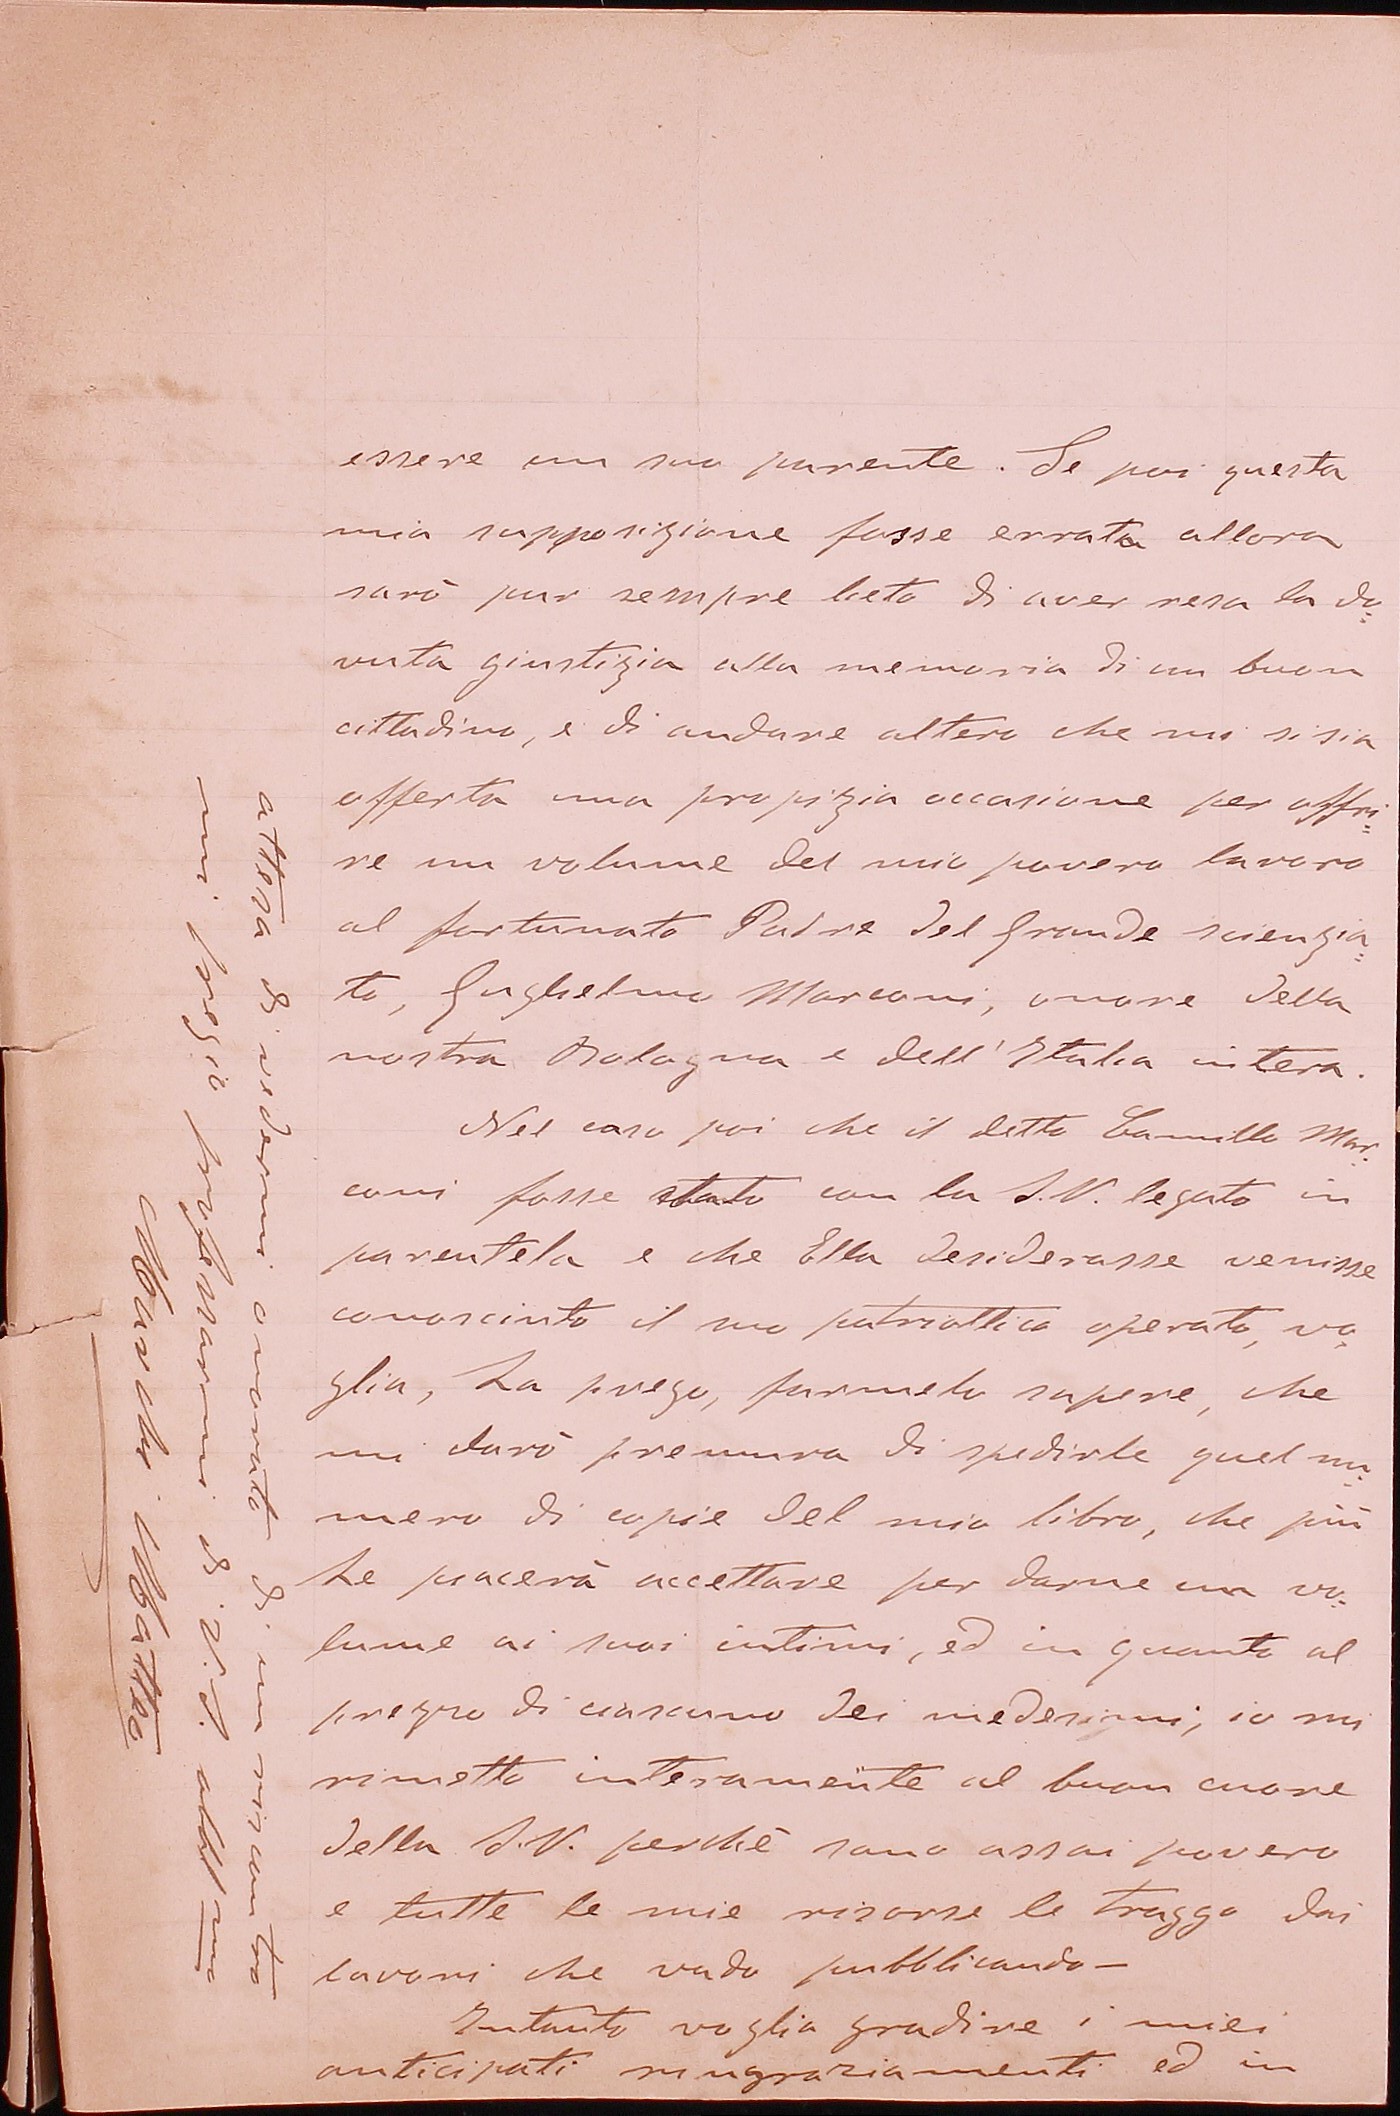 essere un suo parente. Se poi questa
mia supposizione fosse errata allora
sarò pur sempre lieto di aver resa la do=
vuta giustizia alla memoria di un buon
cittadino, e di andare altero che mi si sia
offerta una propizia occasione per offri=
re un volume del mio povero lavoro
al fortunato Padre del Grande scienzia=
to, Guglielmo Marconi, onore della
nostra Bologna e dell'Italia intera.
Nel caso poi che il detto Camillo Mar=
coni fosse stato con la S.V. legato in
parentela e che Ella desiderasse venisse
conosciuto il suo patriottico operato, vo=
glia, La prego, farmelo sapere, che
mi darò premura di spedirle quel nu=
mero di copie del mio libro, che più
Le piacerà accettare per darne un vo=
lume ai suoi intimi, ed in quanto al
prezzo di ciascuno dei medesimi, io mi
rimetto interamente al buon cuore
della S.V. perchè sono assai povero
e tutte le mie risorse le traggo dai
lavori che vado pubblicando—
Intanto voglia gradire i miei
anticipati ringraziamenti ed in
attesa di vedermi onorato di un riscontro
mi pregio professarmi di V.S. obbl mo
Matteo